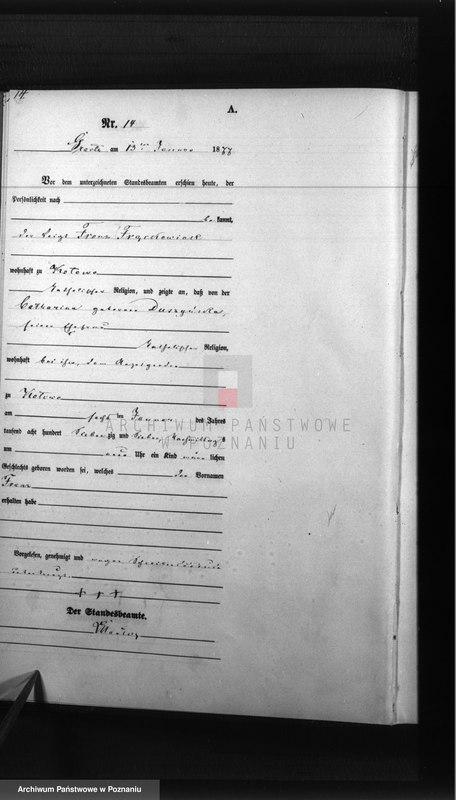 14.
A.
Nr. 14
am 13ten Januar 1877
Vor dem unterzeichneten Standesbeamten erschien heute, der
Persönlichkeit nach
be kannt,
der Franz Frąckowiack
wohnhaft zu Kotowo
katholischer Religion, und zeigte an, daß von der
Catharina geborene
seiner Ehefrau
katholischer Religion,
wohnhaft bei ihm, dem Anzeigenden
zu Kotowo
am im Januar des Jahres
tausend acht hundert siebenzig und sieben, Nachmittags
um Uhr ein Kind männ lichen
Geschlechts geboren worden sei, welches den Vornamen
Franz
erhalten habe
Vorgelesen, genehmigt und wegen Schreibensunkunde
+ + +
Der Standesbeamte.
ARCHIWUM PAŃSTWOWE
W POZNANIU
Archiwum Państwowe w Poznaniu